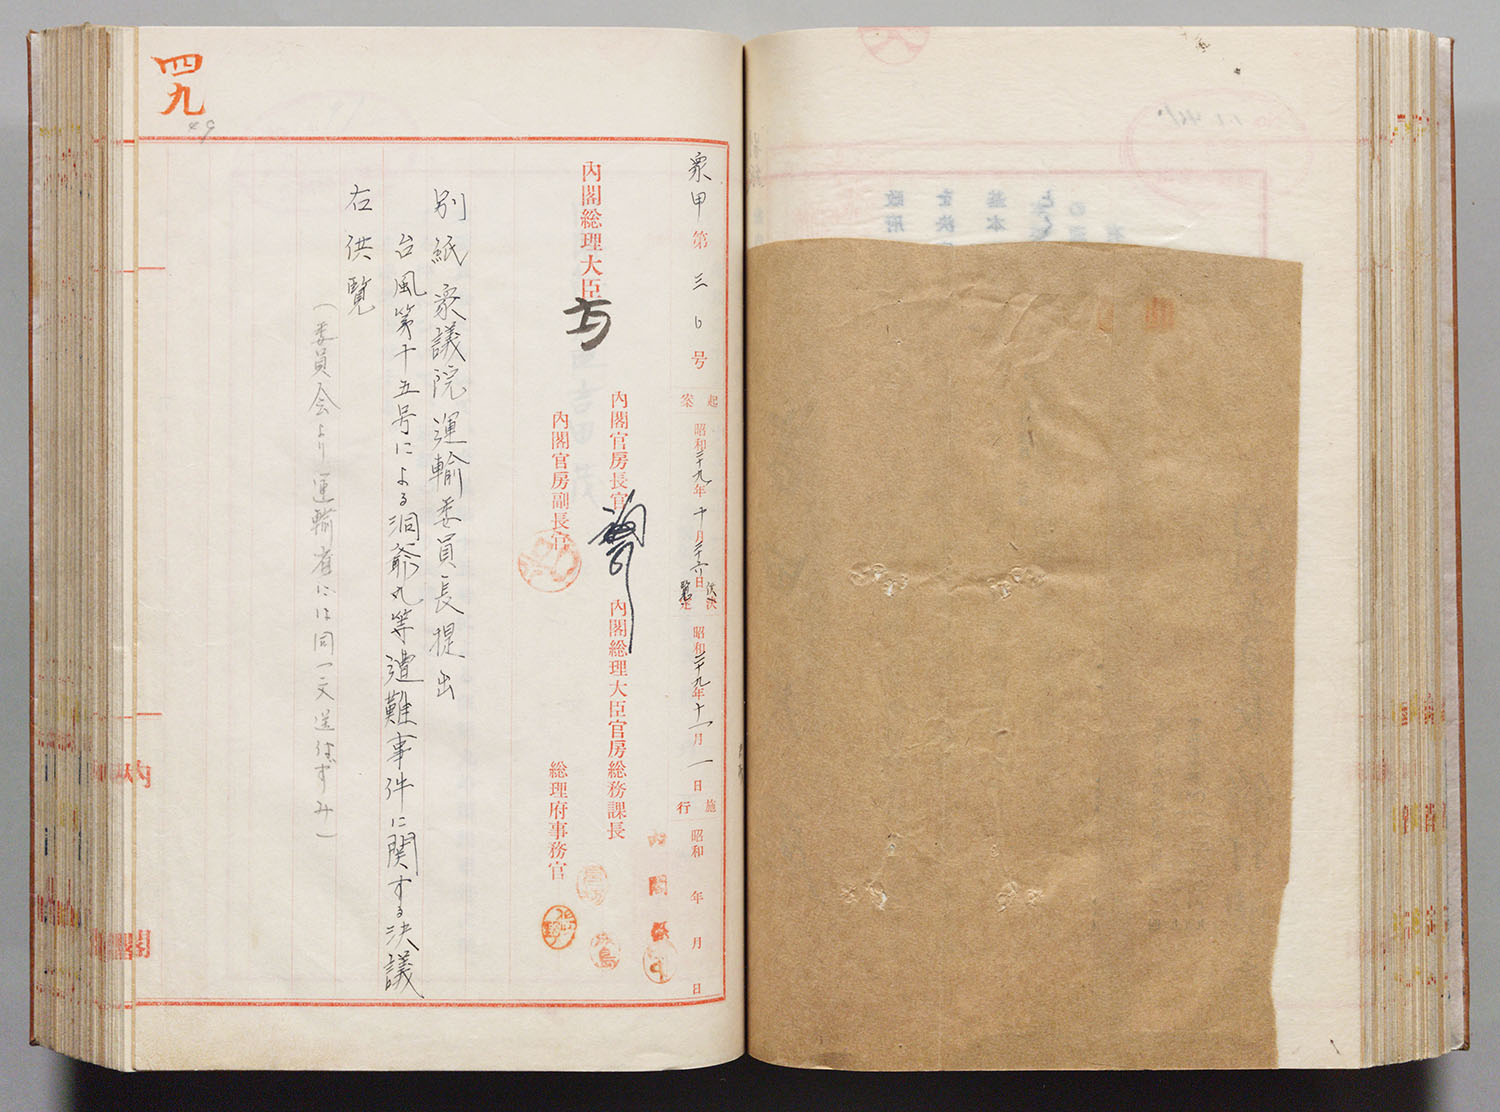 四九
49
衆甲第三b号
起案 昭和二十九年十月二十六日
供覧 決定 昭和二十九年十一月一日
施行 昭和 年 月 日
内閣総理大臣
内閣官房長官
内閣総理大臣官房総務課長
内閣官房副長官
総理府事務官
別紙衆議院運輸委員長提出
台風第十五号による洞爺丸等遭難事件に関する決議
右供覧
(委員会より運輸省には同一文送付ずみ)
内閣